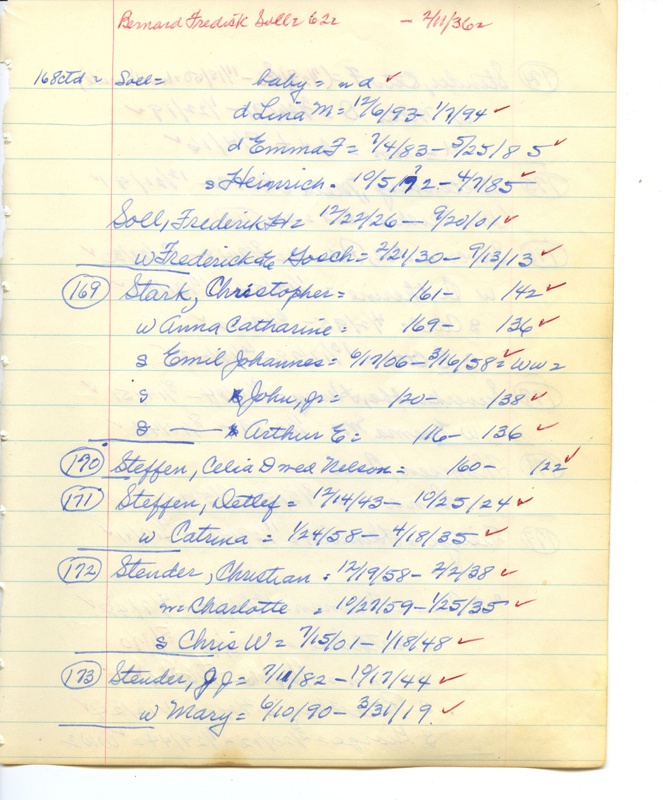 Bernard Fredrik Soll= 62= - 2/11/36=
168ctd = Soll= baby = nd ✓
d Lina M= 12/6/93- 1/7/94 ✓
d Emma F= 7/4/83- 5/25/85 ✓
s Heinrich= 10/5/ - 4/7/85 ✓
Soll, Frederik H= 12/22/26- 9/20/01 ✓
w Fredericke Gosch= 2/21/30- 9/13/13 ✓
169 Stark, Christopher= /61- /42 ✓
w Anna Catharine= /69- /36 ✓
s Emil Johannes= 6/17/06- 3/16/58= ✓ WW2
s John, jr= /20- /38 ✓
s — Arthur E= /16- /36 ✓
170 Steffen, Celia D wed Nelson= /60- /22 ✓
171 Steffen, Detlef= 12/14/43- 10/25/24 ✓
w Catrina= 1/24/58- 4/18/35 ✓
172 Stender, Christian= 12/19/58- 2/2/38 ✓
Charlotte = 10/27/59- 1/25/35 ✓
s Chris W= 7/15/01- 1/18/48 ✓
173 Stender, J J= 7/11/82- 10/17/44 ✓
w Mary= 6/10/90- 3/31/19. ✓